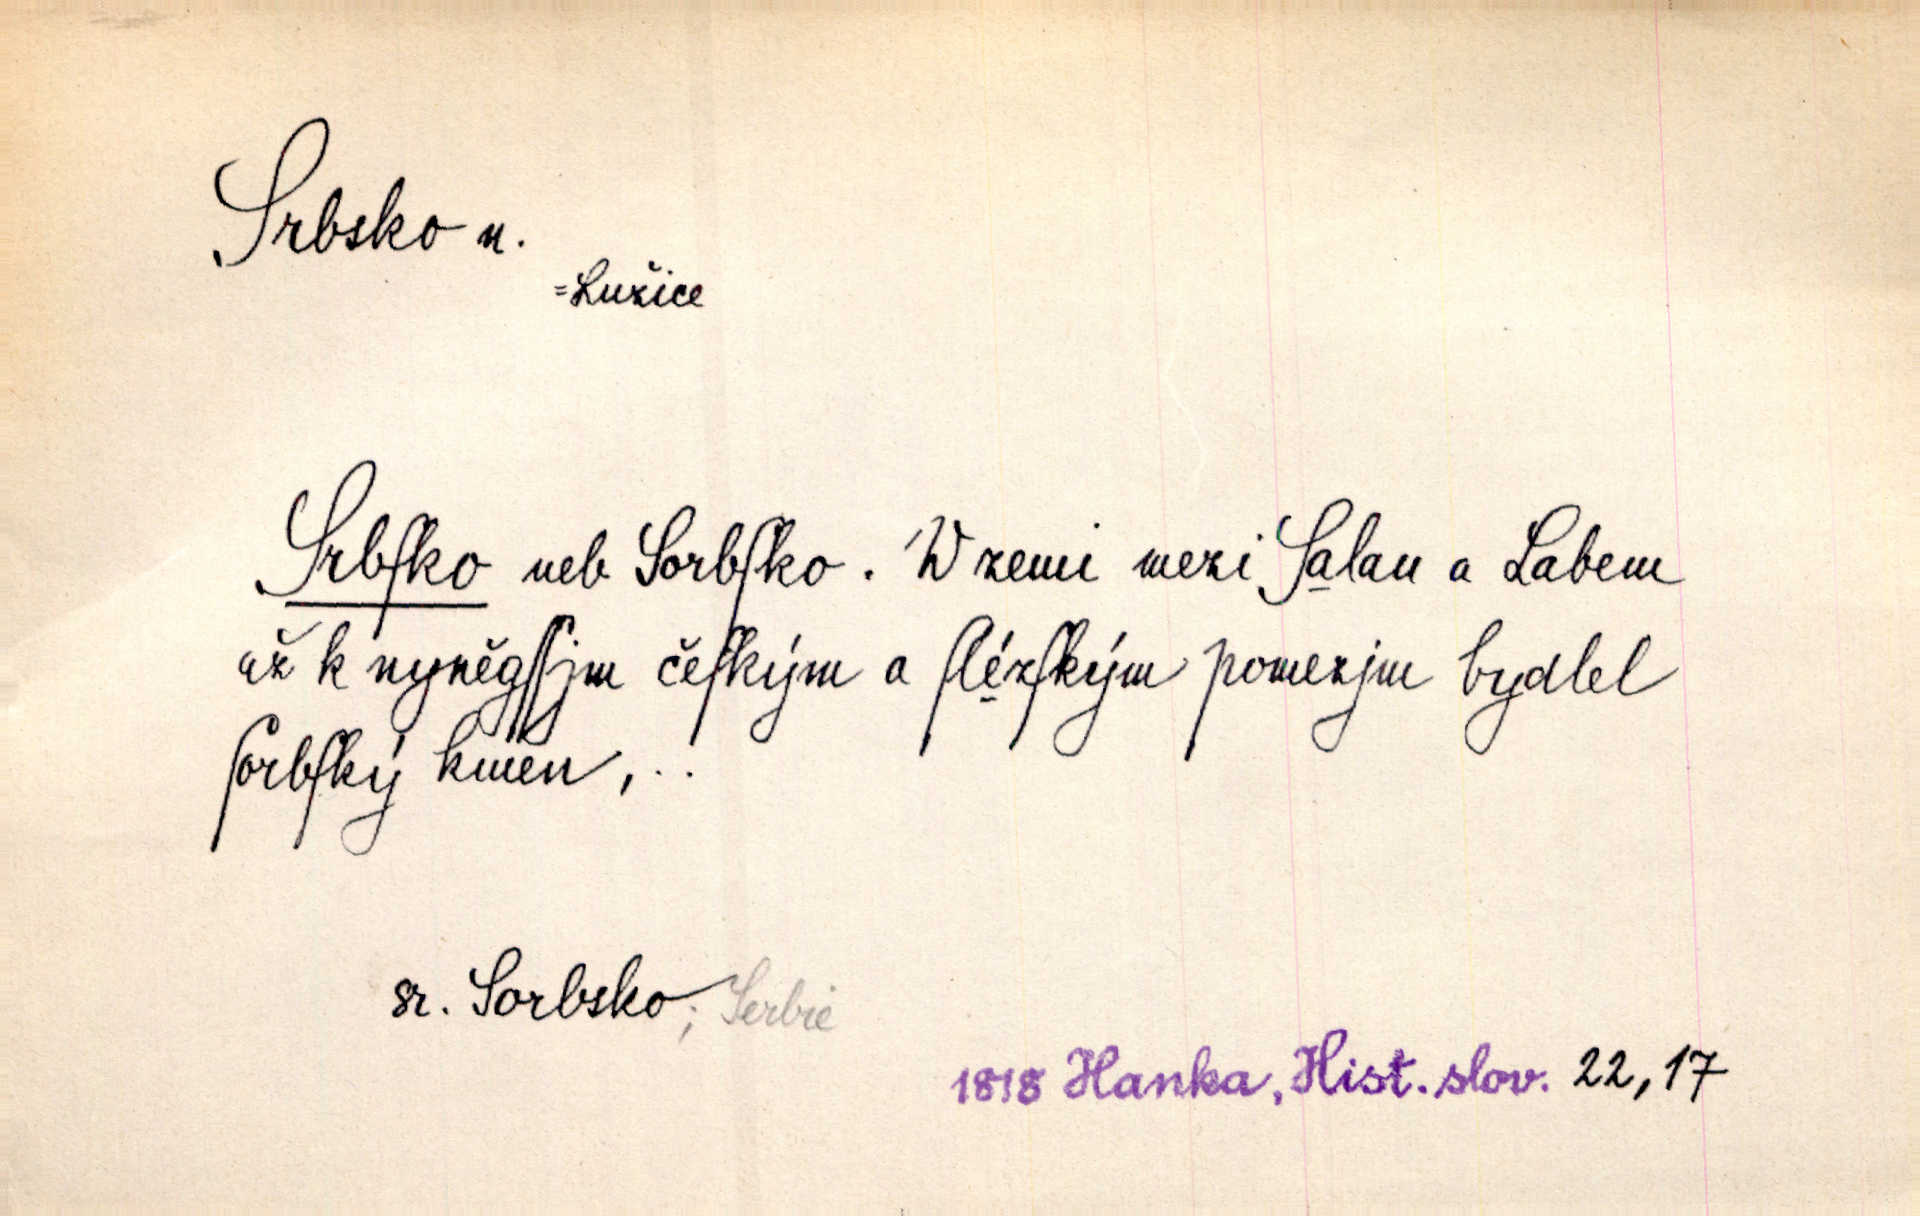 Srbsko n.
=Lužice
Srbſko neb Sorbſko. W zemi mezi Salau a Labem
až k nyněgſſjm čeſkým a ſlézſkým pomezjm bydlel
ſorbſký kmen, ..
sr. Sorbsko; Serbie
1818 Hanka, Hist. slov. 22, 17